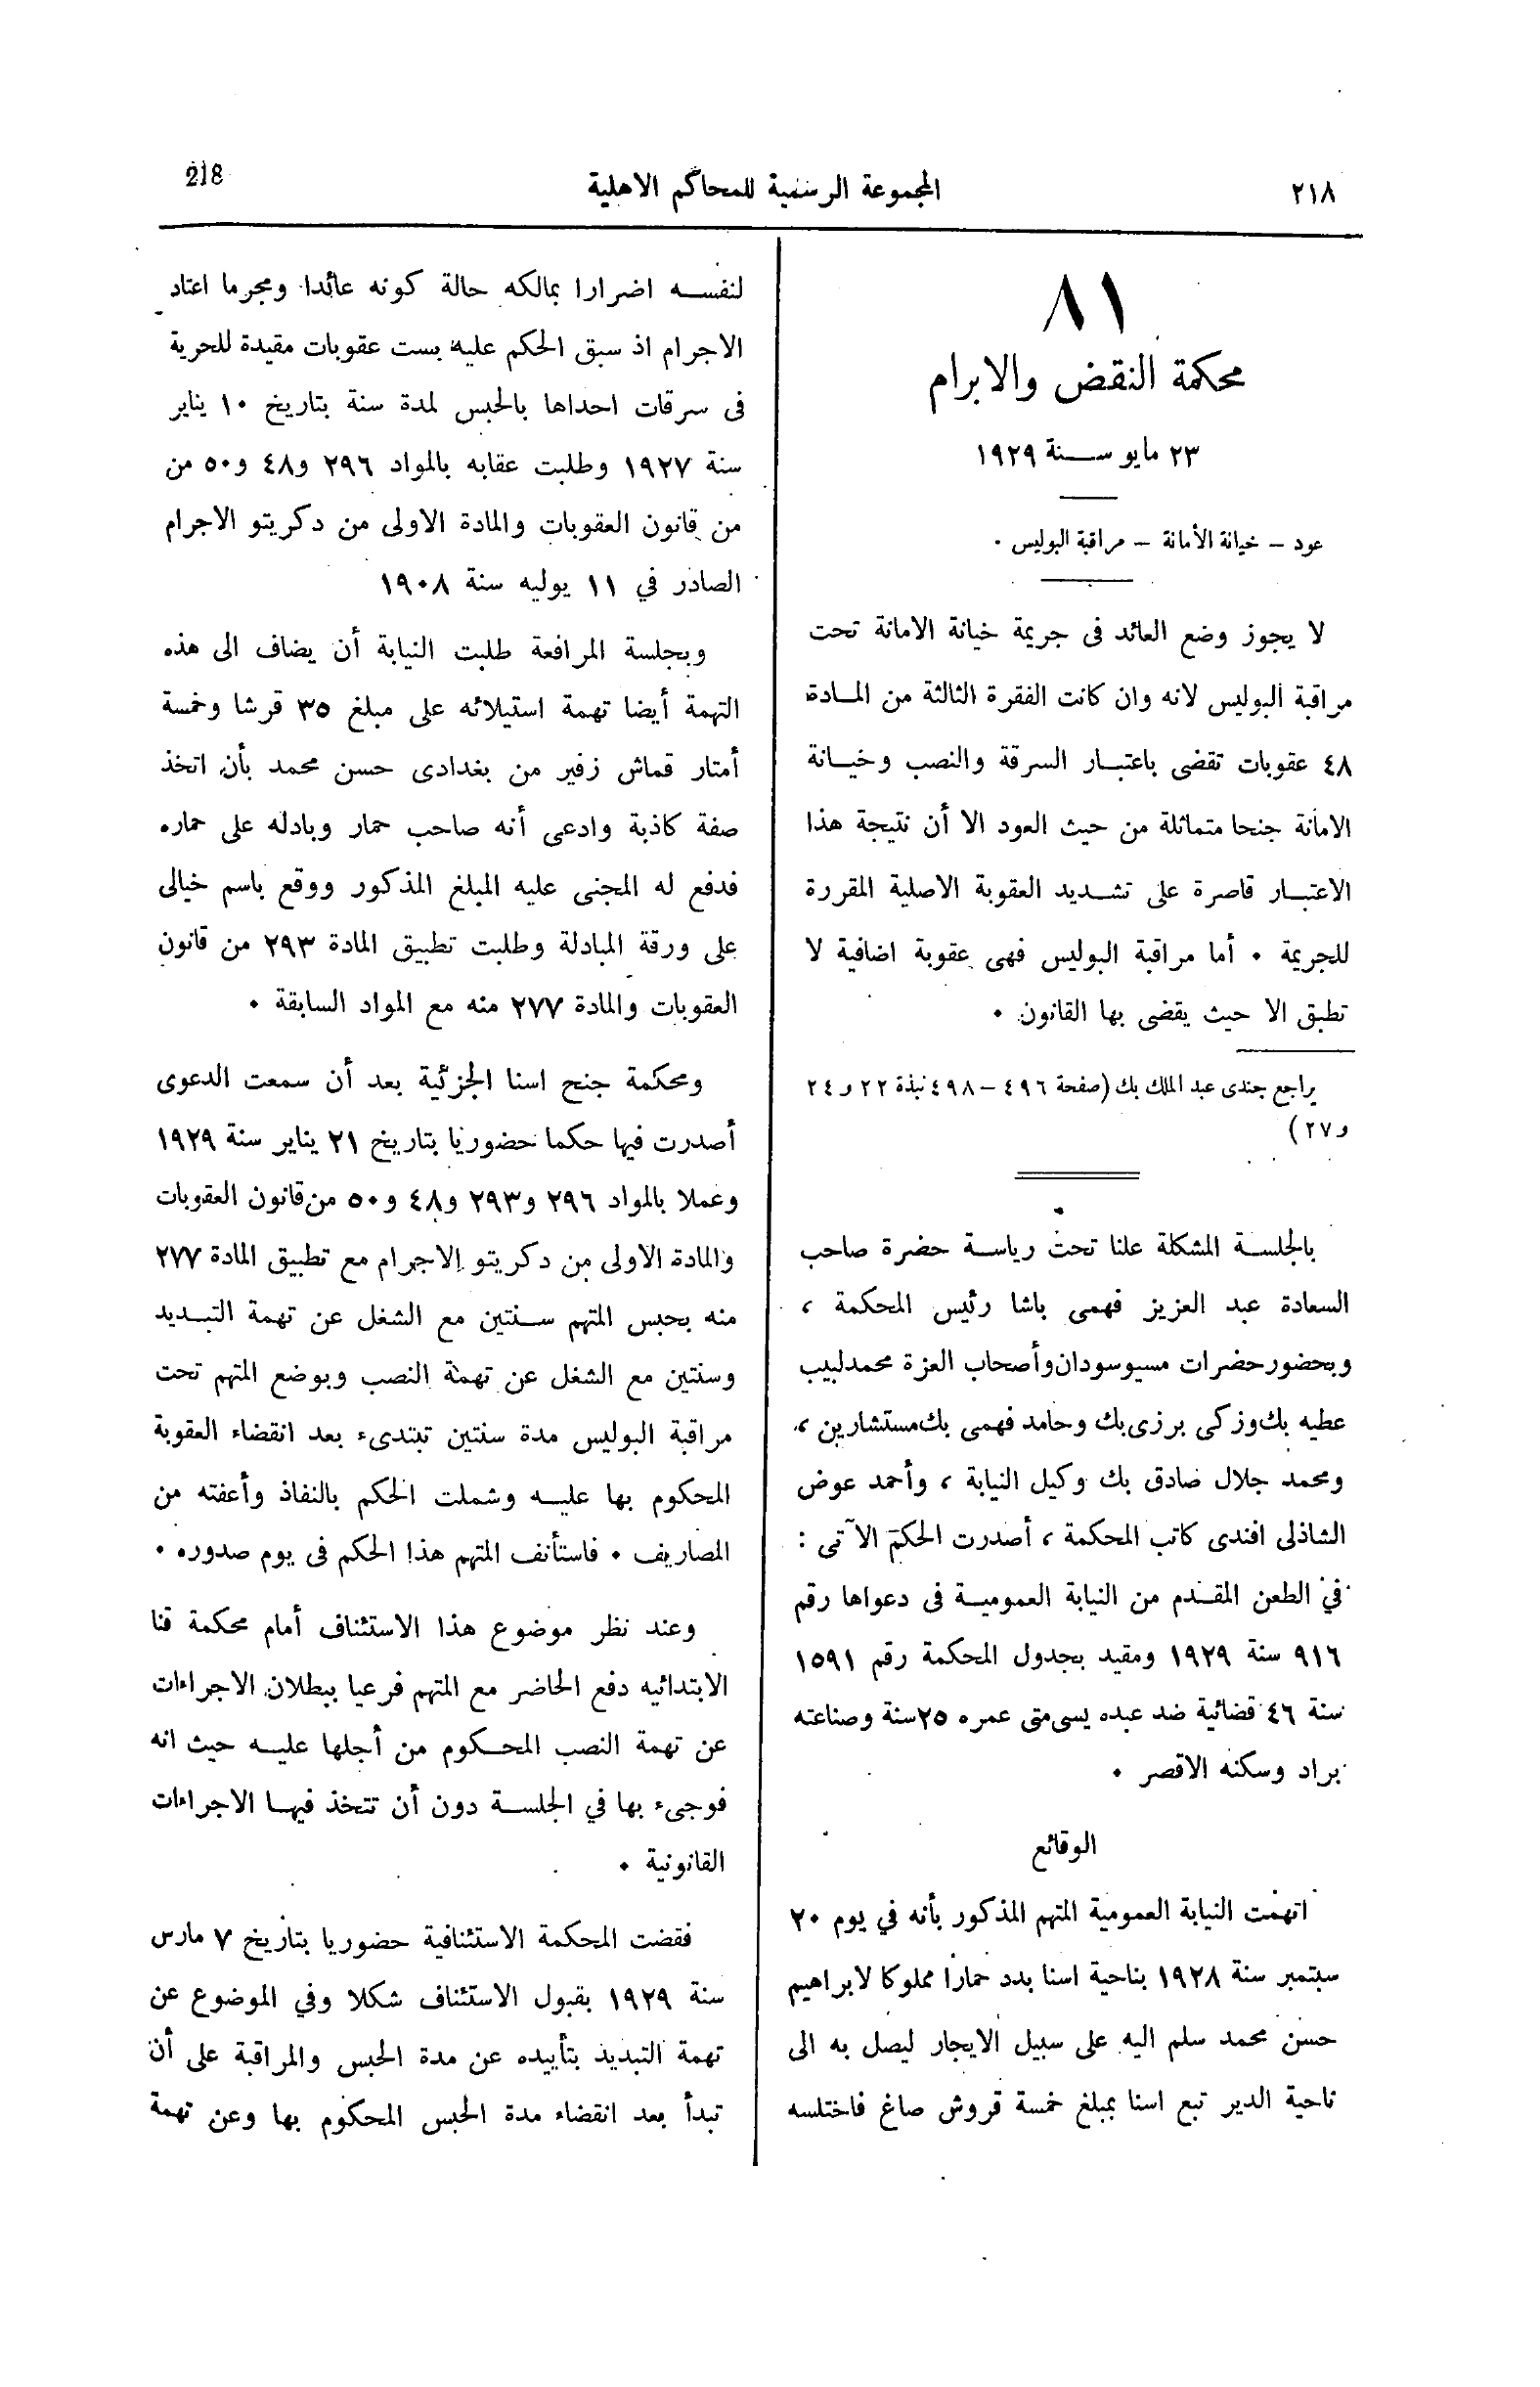 ٢١٨
المجموعة الرسمية للمحاكم الاهلية
218
٨١
محكمة النقض والابرام
٢٣ مايو سنة ١٩٢٩
عود – خيانة الأمانة – مراقبة البوليس ٠
لا يجوز وضع العائد فى جريمة خيانة الامانة تحت
مراقبة البوليس لانه وان كانت الفقرة الثالثة من المادة
٤٨ عقوبات تقضى باعتبار السرقة والنصب وخيانة
الامانة جنحا متماثلة من حيث العود الا أن نتيجة هذا
الاعتبار قاصرة على تشديد العقوبة الاصلية المقررة
للجريمة ٠ أما مراقبة البوليس فهى عقوبة اضافية لا
تطبق الا حيث يقضى بها القانون ٠
يراجع جندى عبد الملك بك (صفحة ٤٩٦ – ٤٩٨ نبذة ٢٢ و ٢٤
و ٢٧)
بالجلسة المشكلة علنا تحت رياسة حضرة صاحب
السعادة عبد العزيز فهمى باشا رئيس المحكمة ،
وبحضور حضرات مسيو سودان وأصحاب العزة محمد لبيب
عطيه بك وزكى برزى بك وحامد فهمى بك مستشارين ،
ومحمد جلال صادق بك وكيل النيابة ، وأحمد عوض
الشاذلى افندى كاتب المحكمة ، أصدرت الحكم الآتى :
في الطعن المقدم من النيابة العمومية فى دعواها رقم
٩١٦ سنة ١٩٢٩ ومقيد بجدول المحكمة رقم ١٥٩١
سنة ٤٦ قضائية ضد عبده يسى متى عمره ٢٥ سنة وصناعته
براد وسكنه الاقصر ٠
الوقائع
اتهمت النيابة العمومية المتهم المذكور بأنه في يوم ٢٠
سبتمبر سنة ١٩٢٨ بناحية اسنا بدد حمارا مملوكا لابراهيم
حسن محمد سلم اليه على سبيل الايجار ليصل به الى
ناحية الدير تبع اسنا بمبلغ خمسة قروش صاغ فاختلسه
لنفسه اضرارا بمالكه حالة كونه عائدا ومجرما اعتاد
الاجرام اذ سبق الحكم عليه بست عقوبات مقيدة للحرية
فى سرقات احداها بالحبس لمدة سنة بتاريخ ١٠ يناير
سنة ١٩٢٧ وطلبت عقابه بالمواد ٢٩٦ و٤٨ و٥٠ من
من قانون العقوبات والمادة الاولى من دكريتو الاجرام
الصادر في ١١ يوليه سنة ١٩٠٨
وبجلسة المرافعة طلبت النيابة أن يضاف الى هذه
التهمة أيضا تهمة استيلائه على مبلغ ٣٥ قرشا وخمسة
أمتار قماش زفير من بغدادى حسن محمد بأن اتخذ
صفة كاذبة وادعى أنه صاحب حمار وبادله على حماره
فدفع له المجنى عليه المبلغ المذكور ووقع باسم خيالى
على ورقة المبادلة وطلبت تطبيق المادة ٢٩٣ من قانون
العقوبات والمادة ٢٧٧ منه مع المواد السابقة ٠
ومحكمة جنح اسنا الجزئية بعد أن سمعت الدعوى
أصدرت فيها حكما حضوريا بتاريخ ٢١ يناير سنة ١٩٢٩
وعملا بالمواد ٢٩٦ و٢٩٣ و٤٨ و٥٠ من قانون العقوبات
والمادة الاولى من دكريتو الاجرام مع تطبيق المادة ٢٧٧
منه بحبس المتهم سنتين مع الشغل عن تهمة التبديد
وسنتين مع الشغل عن تهمة النصب وبوضع المتهم تحت
مراقبة البوليس مدة سنتين تبتدىء بعد انقضاء العقوبة
المحكوم بها عليه وشملت الحكم بالنفاذ وأعفته من
المصاريف ٠ فاستأنف المتهم هذا الحكم فى يوم صدوره ٠
وعند نظر موضوع هذا الاستئناف أمام محكمة قنا
الابتدائيه دفع الحاضر مع المتهم فرعيا ببطلان الاجراءات
عن تهمة النصب المحكوم من أجلها عليه حيث انه
فوجىء بها في الجلسة دون أن تتخذ فيها الاجراءات
القانونية ٠
فقضت المحكمة الاستئنافية حضوريا بتاريخ ٧ مارس
سنة ١٩٢٩ بقبول الاستئناف شكلا وفي الموضوع عن
تهمة التبديد بتأييده عن مدة الحبس والمراقبة على أن
تبدأ بعد انقضاء مدة الحبس المحكوم بها وعن تهمة